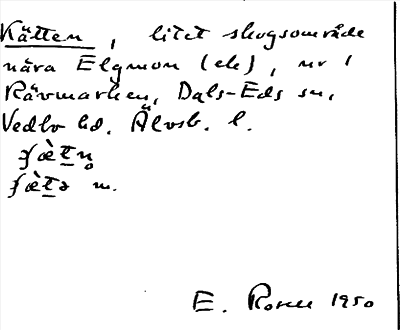 Kätten, litet skogsområde
nära Elgmon (ek), nr 1
Rävmarken, Dals-Eds sn,
Vedbo hd. Älvsb. l.
ʃæ̀tn̥
ʃæ̀tə m.
E. 1950